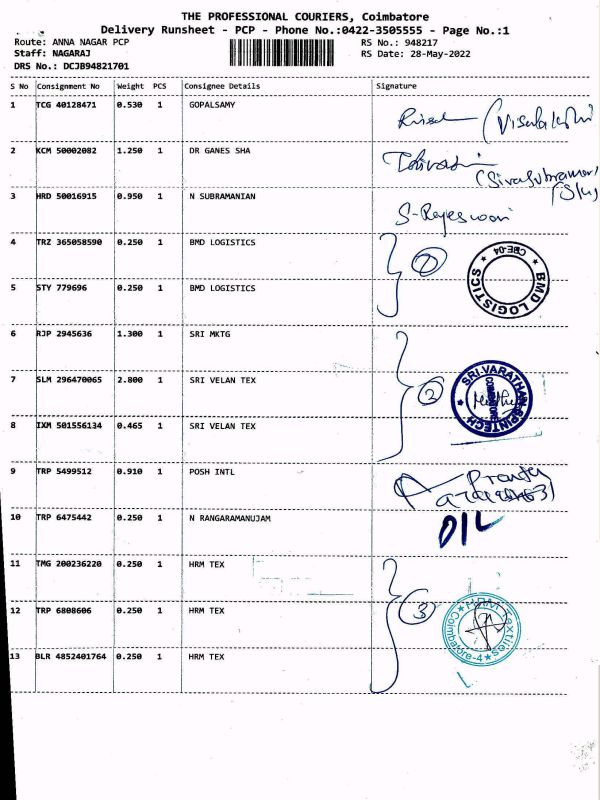 THE PROFESSIONAL COURIERS, Coimbatore
Delivery Runsheet - PCP - Phone No.:0422-3505555 - Page No.:1
Route: ANNA NAGAR PCP
RS No.: 948217
Staff: NAGARAJ
RS Date: 28-May-2022
DRS No.: DCJB94821701
S No Consignment No Weight PCS Consignee Details Signature
1 TCG 40128471 0.530 1 GOPALSAMY
(Visalakshi
2 KCM 50002082 1.250 1 DR GANES SHA
(Sivasubramani
3 HRD 50016915 0.950 1 N SUBRAMANIAN
S-Rajeswari
4 TRZ 365058590 0.250 1 BMD LOGISTICS
1
BMD LOGISTICS
★ CBE-04 ★
5 STY 779696 0.250 1 BMD LOGISTICS
6 RJP 2945636 1.300 1 SRI MKTG
7 SLM 296470065 2.800 1 SRI VELAN TEX
2
SRI.VARATHAN SPINTECH
COIMBATORE
8 IXM 501556134 0.465 1 SRI VELAN TEX
9 TRP 5499512 0.910 1 POSH INTL
10 TRP 6475442 0.250 1 N RANGARAMANUJAM
D/L
11 TMG 200236220 0.250 1 HRM TEX
12 TRP 6808606 0.250 1 HRM TEX
3
★ HRM Textiles ★
Coimbatore-4
13 BLR 4852401764 0.250 1 HRM TEX